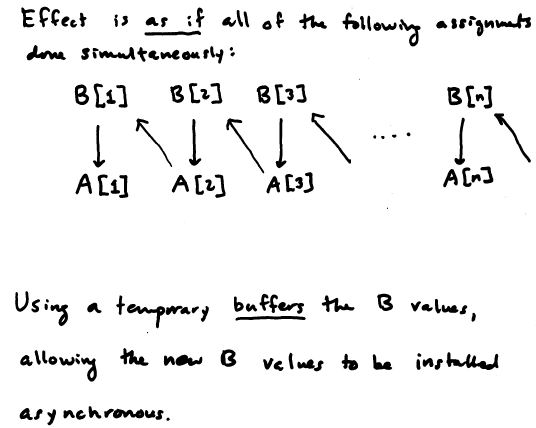 Effect is as if all of the following assignments
done simultaneously:
B[1] B[2] B[3] .... B[n]
A[1] A[2] A[3] A[n]
Using a temporary buffers the B values,
allowing the new B values to be installed
asynchronous.